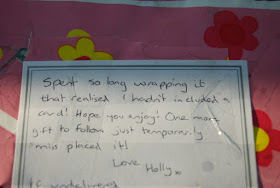 Spent so long wrapping it
that realised I hadn't included a
card! Hope you enjoy! One more
gift to follow just temporarily
miss placed it!
Love
Holly x
If undelivered